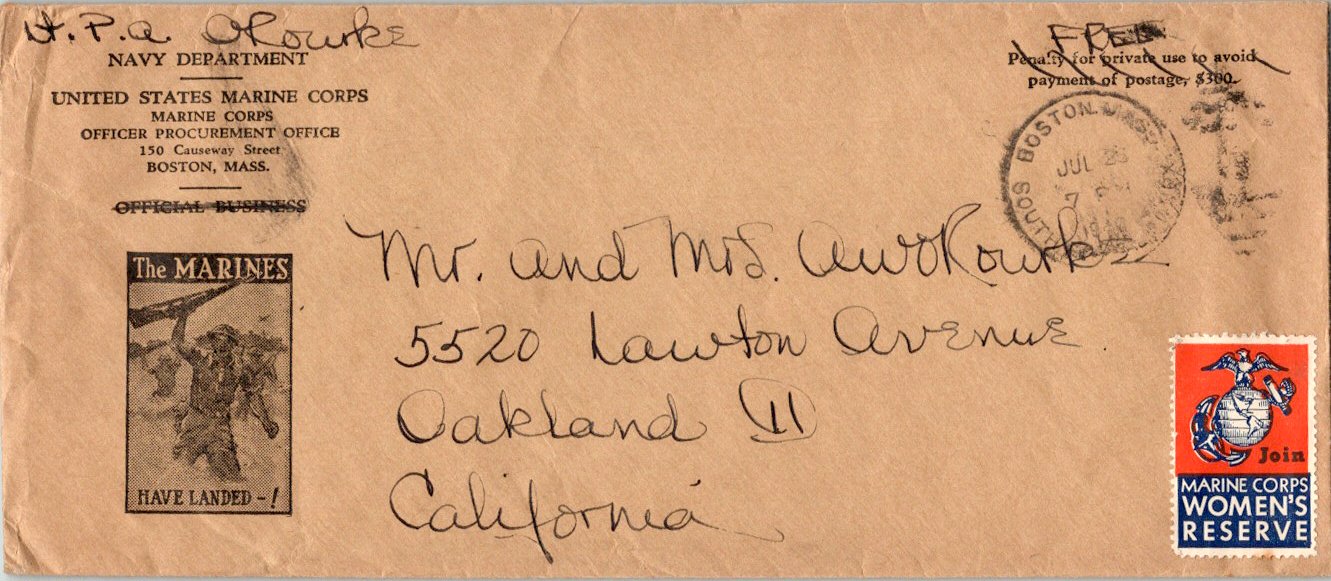 H.P.A. ORourke
NAVY DEPARTMENT
UNITED STATES MARINE CORPS
MARINE CORPS
OFFICER PROCUREMENT OFFICE
150 Causeway Street
BOSTON, MASS.
OFFICIAL BUSINESS
FREE
Penalty for private use to avoid
payment of postage, $300.
BOSTON, MASS.
JUL
7
The MARINES
HAVE LANDED-!
Mr. and Mrs. AWORourke
5520 Lawton Avenue
Oakland 11
California
Join
MARINE CORPS
WOMEN'S
RESERVE